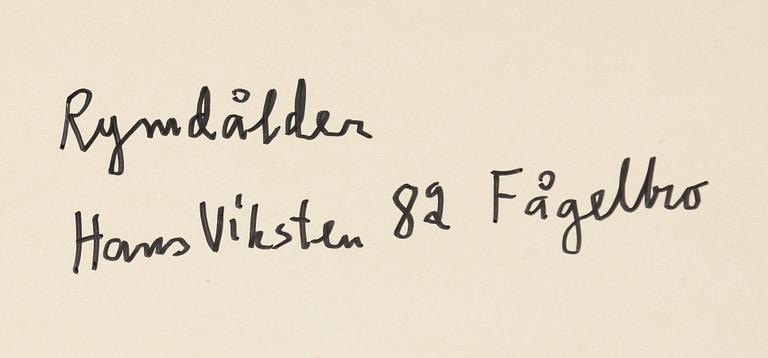 Rymdålder
Hans Viksten 82 Fågelbro